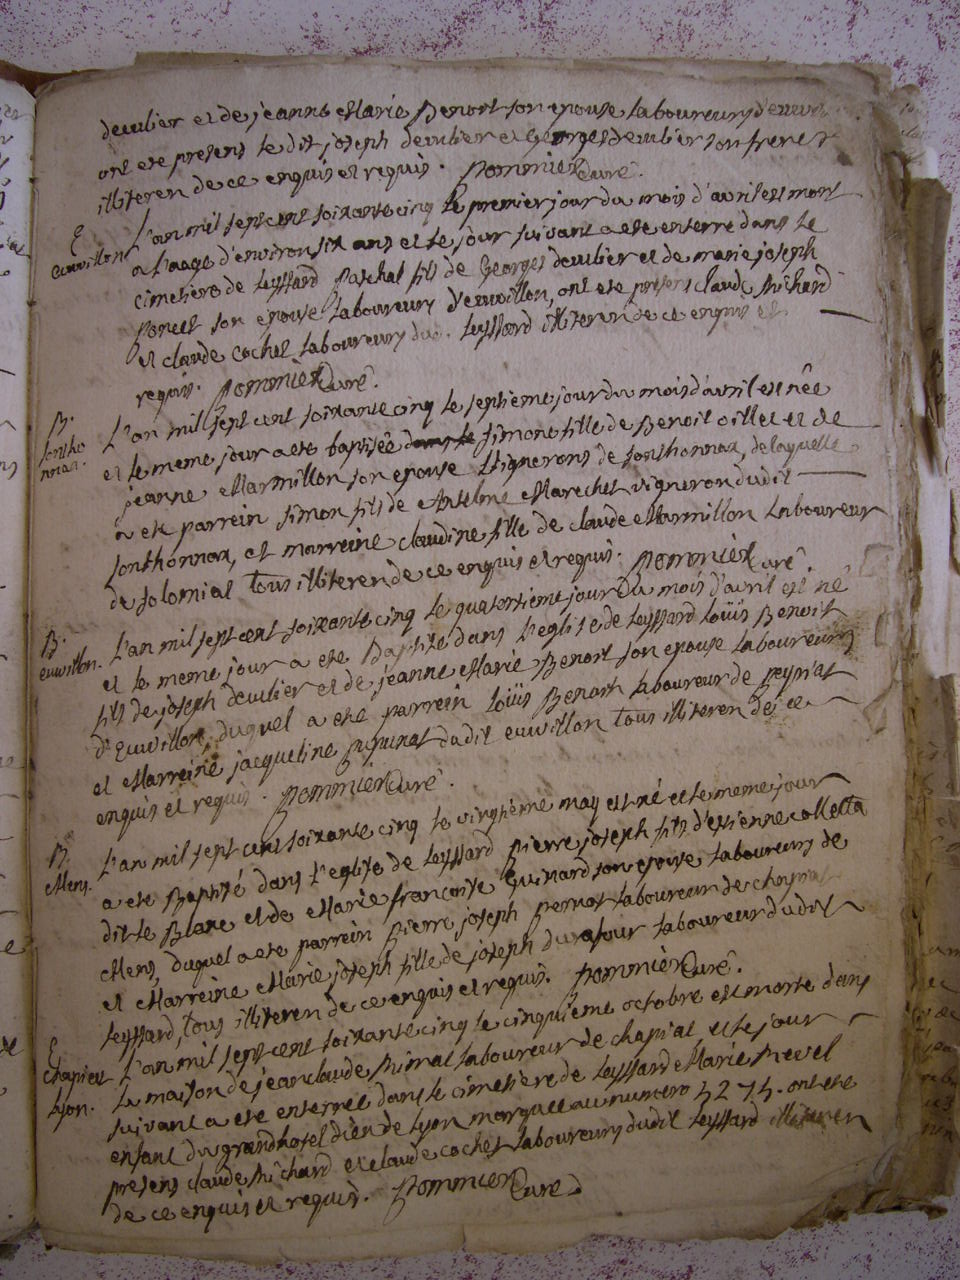 deculier et de jeanne Marie Benoit son epouse laboureurs
ont ete presens le dit joseph deculier et Georges deculier son frere
illiteren de ce enquis et requis. Pommier Curé.
E. euvillon L'an mil sept cent soixante cinq le premier jour du mois d'avril est mort
a l'aage d'environ six ans et le jour suivant a ete enterré dans le
cimetiere de leyssard Paschal fils de Georges deculier et de marie joseph
Poncet son epouse laboureurs d'euvillon, ont ete presens claude Michard
et claude cochet laboureurs dud. leyssard illiteren de ce enquis et
requis. Pommier Curé.
B. L'an mil sept cent soixante cinq le septieme jour du mois d'avril est née
sontho et le meme jour a ete baptisée dans le simone fille de Benoit oillet et de
nnax. jeanne Marmillon son epouse Vignerons de sonthonnax, de laquelle
a ete parrein simon fils de Antelme Marechet vigneron dudit
sonthonnax, et marreine claudine fille de claude Marmillon laboureur
de solomiat tous illiteren de ce enquis et requis. Pommier Curé.
B. L'an mil sept cent soixante cinq le quatorsieme jour du mois d'avril est né
euvillon. et le meme jour a ete Baptisé dans l'eglise de leyssard loüis Benoit
fils de joseph deculier et de jeanne Marie Benoit son epouse laboureurs
d'Euvillon, duquel a ete parrein loüis Benoit laboureur de peyriat
et Marreine jacqueline dudit euvillon tous illiteren de ce
enquis et requis. Pommier Curé.
B. L'an mil sept cent soixante cinq le vingtieme may est né et le meme jour
Mens. a ete Baptisé dans l'eglise de leyssard pierre joseph fils d'estienne colletta
dit le Blanc et de Marie françoise Guinard son epouse laboureurs de
Mens, duquel a ete parrein Pierre joseph Perrot laboureur de
et Marreine Marie joseph fille de joseph durafour laboureur dudit
leyssard, tous illiteren de ce enquis et requis. Pommier Curé.
E. L'an mil sept cent soixante cinq le cinquieme octobre est morte dans
chapiat la maison de jean claude laboureur de chapiat, et le jour
lyon. suivant a ete enterrée dans le cimetiere de leyssard Marie
enfant du grand hotel dieu de lyon marquée au numero 5275. ont ete
presens claude Michard et claude cochet laboureurs dudit leyssard illiteren
de ce enquis et requis. Pommier Curé